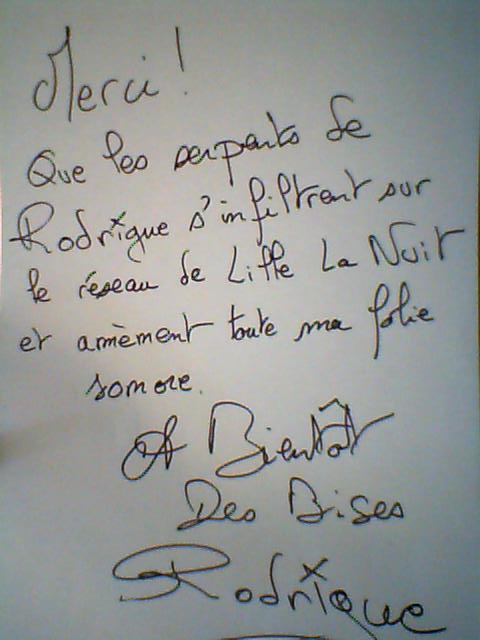 Merci !
Que les serpents de
Rodrigue s'infiltrent sur
le réseau de Lille La Nuit
et amèment toute ma folie
sonore.
A Bientôt
Des Bises
Rodrigue